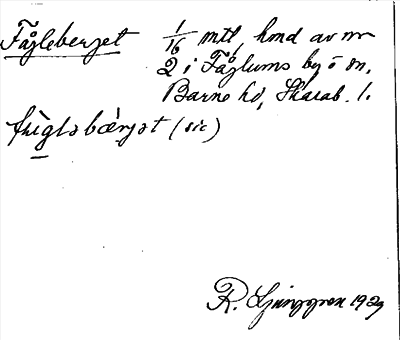 Fågleberget 1/16 mtl, hmd av nr
2 i Fåglums by o sn,
Barne hd, Skarab. l.
fùglabæ̀rjat (sic)
R. Ljunggren 1929